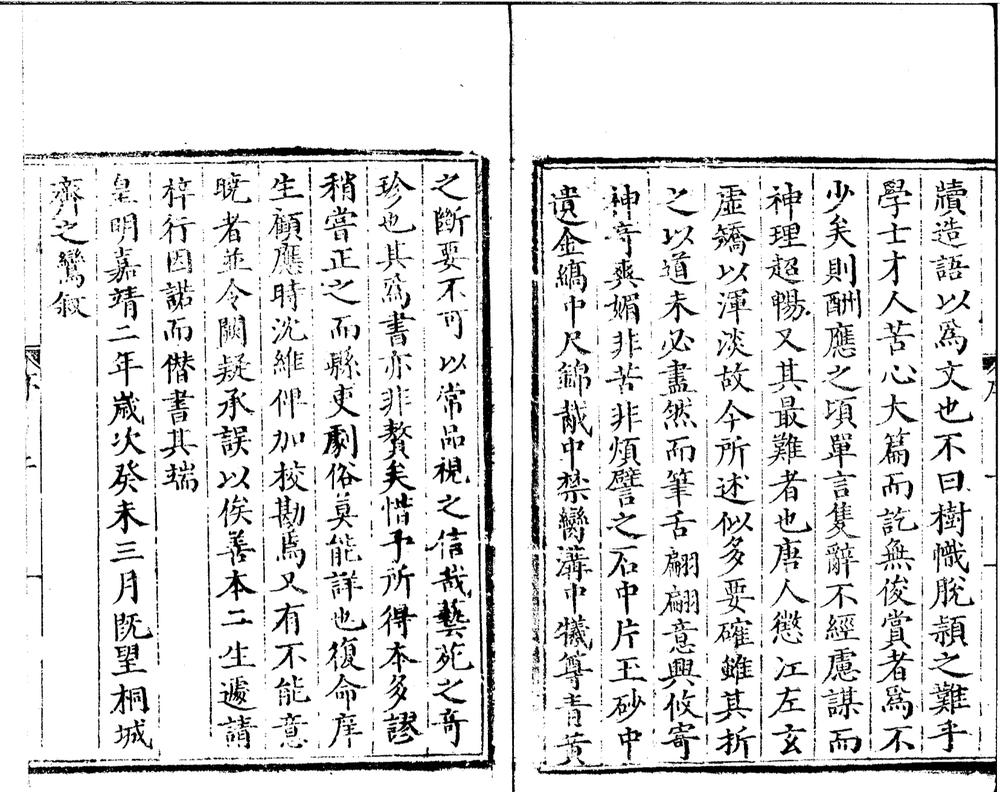 牘造語以爲文也不曰樹幟脫潁之難乎
學士才人苦心大篇而訖無俊賞者爲不
少矣則酬應之頃單言隻辭不經慮謀而
神理超暢又其最難者也唐人懲江左玄
虛矯以渾淡故今所述似多要確雖其折
之以道未必盡然而筆舌翩翩意興攸寄
神奇爽媚非苦非煩譬之石中片玉砂中
遺金縞中尺錦胾中禁臠溝中犧尊青黃
之斷要不可以常品視之信哉藝苑之奇
珍也其爲書亦非贅矣惜予所得本多謬
稍嘗正之而縣吏劇俗莫能詳也復命庠
生顧應時沈維伊加校勘焉又有不能意
曉者並令闕疑承誤以俟善本二生遽請
梓行因諾而僭書其端
皇明嘉靖二年歲次癸未三月旣望桐城
齊之鸞叙